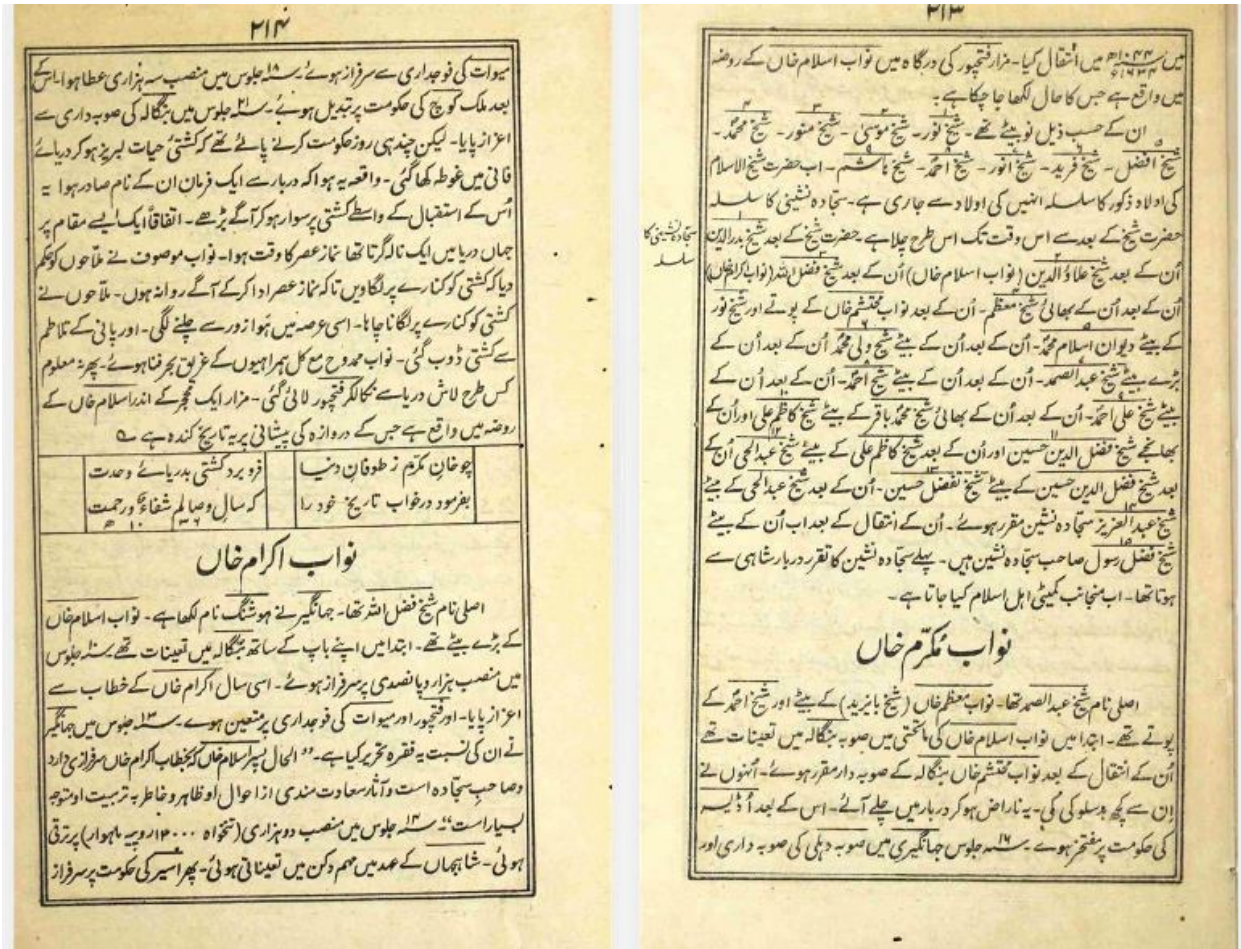 ۲۱۳
میں ۱۰۴۴ھ ۱۶۳۴ء میں انتقال کیا۔ مزار فتحپور کی درگاہ میں نواب اسلام خاں کے روضہ
میں واقع ہے جس کا حال لکھا جا چکا ہے۔
ان کے حسب ذیل نو بیٹے تھے۔ شیخ نور۔ شیخ موسیٰ۔ شیخ منور۔ شیخ محمدؐ۔
شیخ افضل۔ شیخ فرید۔ شیخ انور۔ شیخ احمدؐ۔ شیخ ہاشم۔ اب حضرت شیخ الاسلام
کی اولاد ذکور کا سلسلہ انہیں کی اولاد سے جاری ہے۔ سجادہ نشینی کا سلسلہ
سجادہ نشینی کا
سلسلہ
حضرت شیخ کے بعد سے اس وقت تک اس طرح چلا ہے۔ حضرت شیخ کے بعد شیخ بدرالدین
اُن کے بعد شیخ علاؤالدین (نواب اسلام خاں) اُن کے بعد شیخ فضل اللہ (نواب اکرام خاں)
اُن کے بعد اُن کے بھائی شیخ معظم۔ اُن کے بعد نواب محتشم خاں کے پوتے اور شیخ نور
کے بیٹے دیوان اسلام محمدؐ۔ اُن کے بعد اُن کے بیٹے شیخ ولی محمدؐ اُن کے بعد اُن کے
بڑے بیٹے شیخ عبدالصمد۔ اُن کے بعد اُن کے بیٹے شیخ احمدؐ۔ اُن کے بعد اُن کے
بیٹے شیخ علی احمدؐ۔ اُن کے بعد اُن کے بھائی شیخ محمدؐ باقر کے بیٹے شیخ کاظم علی اور اُن کے
بھانجے شیخ فضل الدین حسین اور اُن کے بعد شیخ کاظم علی کے بیٹے شیخ عبدالحی اُن کے
بعد شیخ فضل الدین حسین کے بیٹے شیخ تفضل حسین۔ اُن کے بعد شیخ عبدالحی کے بیٹے
شیخ عبدالعزیز سجادہ نشین مقرر ہوئے۔ اُن کے انتقال کے بعد اب اُن کے بیٹے
شیخ فضل رسول صاحب سجادہ نشین ہیں۔ پہلے سجادہ نشین کا تقرر دربار شاہی سے
ہوتا تھا۔ اب منجانب کمیٹی اہل اسلام کیا جاتا ہے۔
نواب مُکرّم خاں
اصلی نام شیخ عبدالصمد تھا۔ نواب معظم خاں (شیخ بایزید) کے بیٹے اور شیخ احمدؐ کے
پوتے تھے۔ ابتدا میں نواب اسلام خاں کی ماتحتی میں صوبہ بنگالہ میں تعینات تھے
اُن کے انتقال کے بعد نواب محتشم خاں بنگالہ کے صوبہ دار مقرر ہوئے۔ اُنہوں نے
اِن سے کچھ بدسلوکی کی۔ یہ ناراض ہو کر دربار میں چلے آئے۔ اس کے بعد اُڈیسہ
کی حکومت پر مفتخر ہوے۔ ۱۶ سنہ جلوس جہانگیری میں صوبہ دہلی کی صوبہ داری اور
۲۱۴
میوات کی فوجداری سے سرفراز ہوئے۔ ۱۸ سنہ جلوس میں منصب سہ ہزاری عطا ہوا۔ اس کے
بعد ملک کوچ کی حکومت پر تبدیل ہوئے۔ ۲۱ سنہ جلوس میں بنگالہ کی صوبہ داری سے
اعزاز پایا۔ لیکن چند ہی روز حکومت کرنے پائے تھے کہ کشتیٔ حیات لبریز ہو کر دریائے
فانی میں غوطہ کھا گئی۔ واقعہ یہ ہوا کہ دربار سے ایک فرمان ان کے نام صادر ہوا یہ
اُس کے استقبال کے واسطے کشتی پر سوار ہو کر آگے بڑھے۔ اتفاقاً ایک ایسے مقام پر
جہاں دریا میں ایک نالہ گرتا تھا نماز عصر کا وقت ہوا۔ نواب موصوف نے ملّاحوں کو حکم
دیا کہ کشتی کو کنارے پر لگاویں تاکہ نماز عصر ادا کر کے آگے روانہ ہوں۔ ملّاحوں نے
کشتی کو کنارے پر لگانا چاہا۔ اسی عرصہ میں ہَوا زور سے چلنے لگی۔ اور پانی کے تلاطم
سے کشتی ڈوب گئی۔ نواب ممدوح مع کل ہمراہیوں کے غریق بحر فنا ہوئے۔ پھر نہ معلوم
کس طرح لاش دریا سے نکالکر فتحپور لائی گئی۔ مزار ایک حجر کے اندر اسلام خاں کے
روضہ میں واقع ہے جس کے دروازہ کی پیشانی پر یہ تاریخ کندہ ہے ؎
چو خانِ مکرّم ز طوفانِ دنیا
فرو برد کشتی بدریائے وحدت
بفرمود در خواب تاریخ خود را
کہ سالِ وصالم شفاعؔ و رحمت
۱۰۳۶ھ
نواب اکرام خاں
اصلی نام شیخ فضل اللہ تھا۔ جہانگیر نے ہوشنگ نام لکھا ہے۔ نواب اسلام خاں
کے بڑے بیٹے تھے۔ ابتدا میں اپنے باپ کے ساتھ بنگالہ میں تعینات تھے۔ ۱۰ سنہ جلوس
میں منصب ہزار و پانصدی پر سرفراز ہوئے۔ اسی سال اکرام خاں کے خطاب سے
اعزاز پایا۔ اور فتحپور اور میوات کی فوجداری پر متعین ہوے۔ ۱۳ سنہ جلوس میں جہانگیر
نے ان کی نسبت یہ فقرہ تحریر کیا ہے۔ "الحال پسر اسلام خاں کہ بخطاب اکرام خاں سرفرازی دارد
و صاحب سجادہ است و آثار سعادت مندی از احوال او ظاہر و خاطر بہ تربیت او متوجہ
بسیار است"۔ ۱۴ سنہ جلوس میں منصب دو ہزاری (تنخواہ ۱۲۰۰۰ روپیہ ماہوار) پر ترقی
ہوئی۔ شاہجہاں کے عہد میں مہم دکن میں تعیناتی ہوئی۔ پھر اسیر کی حکومت پر سرفراز